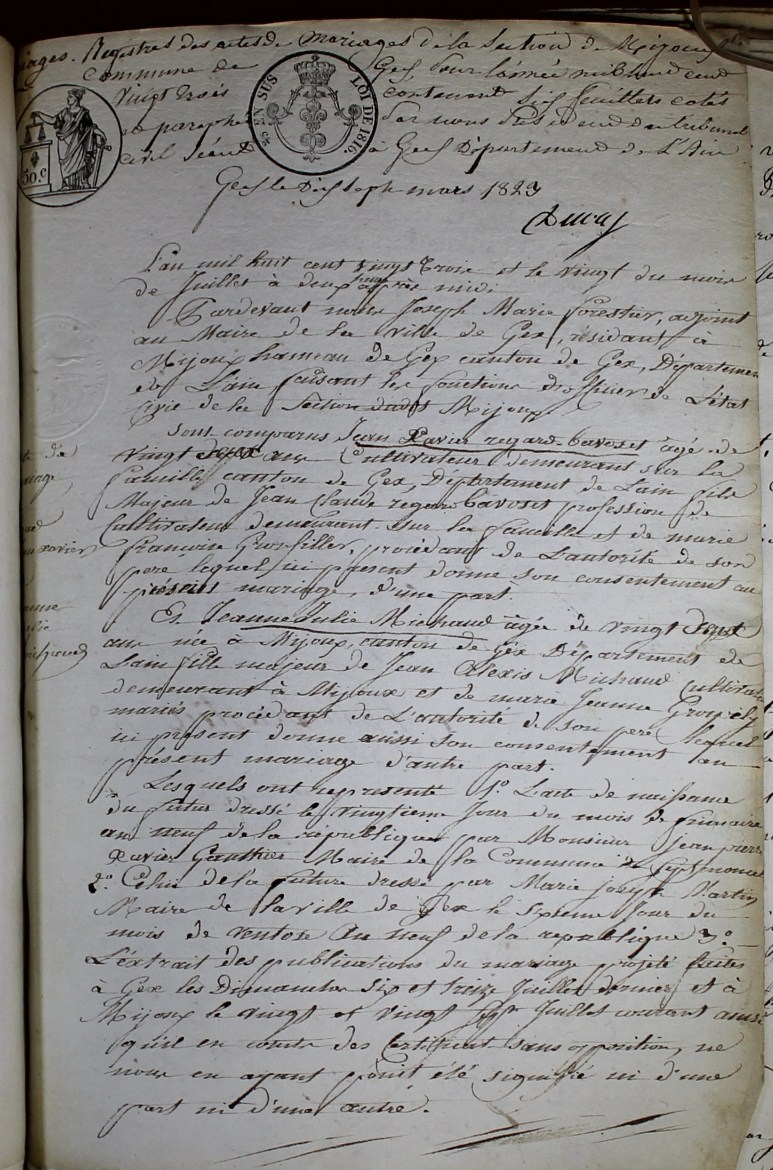 Registres des actes de mariages de la Section de Mijoux
Commune de Gex, pour l'année mil huit cent
Vingt trois contenant six feuillets cotés
et paraphé par nous Président du tribunal
civil séant à Gex Département de L'Ain
EN SUS
LOI DE 1816.
50.c
Gex le Dix sept mars 1823
L'an mil huit cent vingt trois et le vingt du mois
de Juillet à deux heures après midi
Pardevant nous Joseph Marie Forestier, adjoint
au Maire de la ville de Gex, résidant à
Mijoux hameau de Gex canton de Gex, Département
de Lain faisant les fonctions d'officier de L'état
Civil de la Section dudit Mijoux
Sont comparus Jean Xavier regard-Cavoset agé de
vingt ans Cultivateur demeurant sur la
faucille canton de Gex, Département de Lain fils
Majeur de Jean Claude regard Cavoset profession de
Cultivateur demeurant sur la faucille et de marie
francoise Grosfiller, procédant de L'autorité de son
pere lequel ici present donne son consentement au
présent mariage, d'une part
Et Jeanne Julie Michaud agée de vingt
ans née à Mijoux, canton de Gex Département de
Lain fille majeur de Jean Alexis Michaud Cultivateur
demeurant à Mijoux et de marie Jeanne
mariés procédant de L'autorité de son pere lequel
ici present donne aussi son consentement au
présent mariage d'autre part.
Lesquels ont représenté 1.o L'acte de naissance
du futur dressé le vingtieme Jour du mois de frimaire
an neuf de la république par Monsieur Jean pierre
Xavier Gauthier Maire de la Commune de Septmoncel
2.o Celui de la future dressé par Marie Joseph Martin
Maire de la ville de Gex le Jour du
mois de ventose an neuf de la republique 3.o
L'extrait des publications du mariage projeté faites
à Gex les Dimanches six et treize Juillet dernier et à
Mijoux le vingt et vingt Juillet courant ainsi
qu'il en conste des Certificat sans opposition, ne
nous en ayant point été signifié ni d'une
part ni d'une autre.